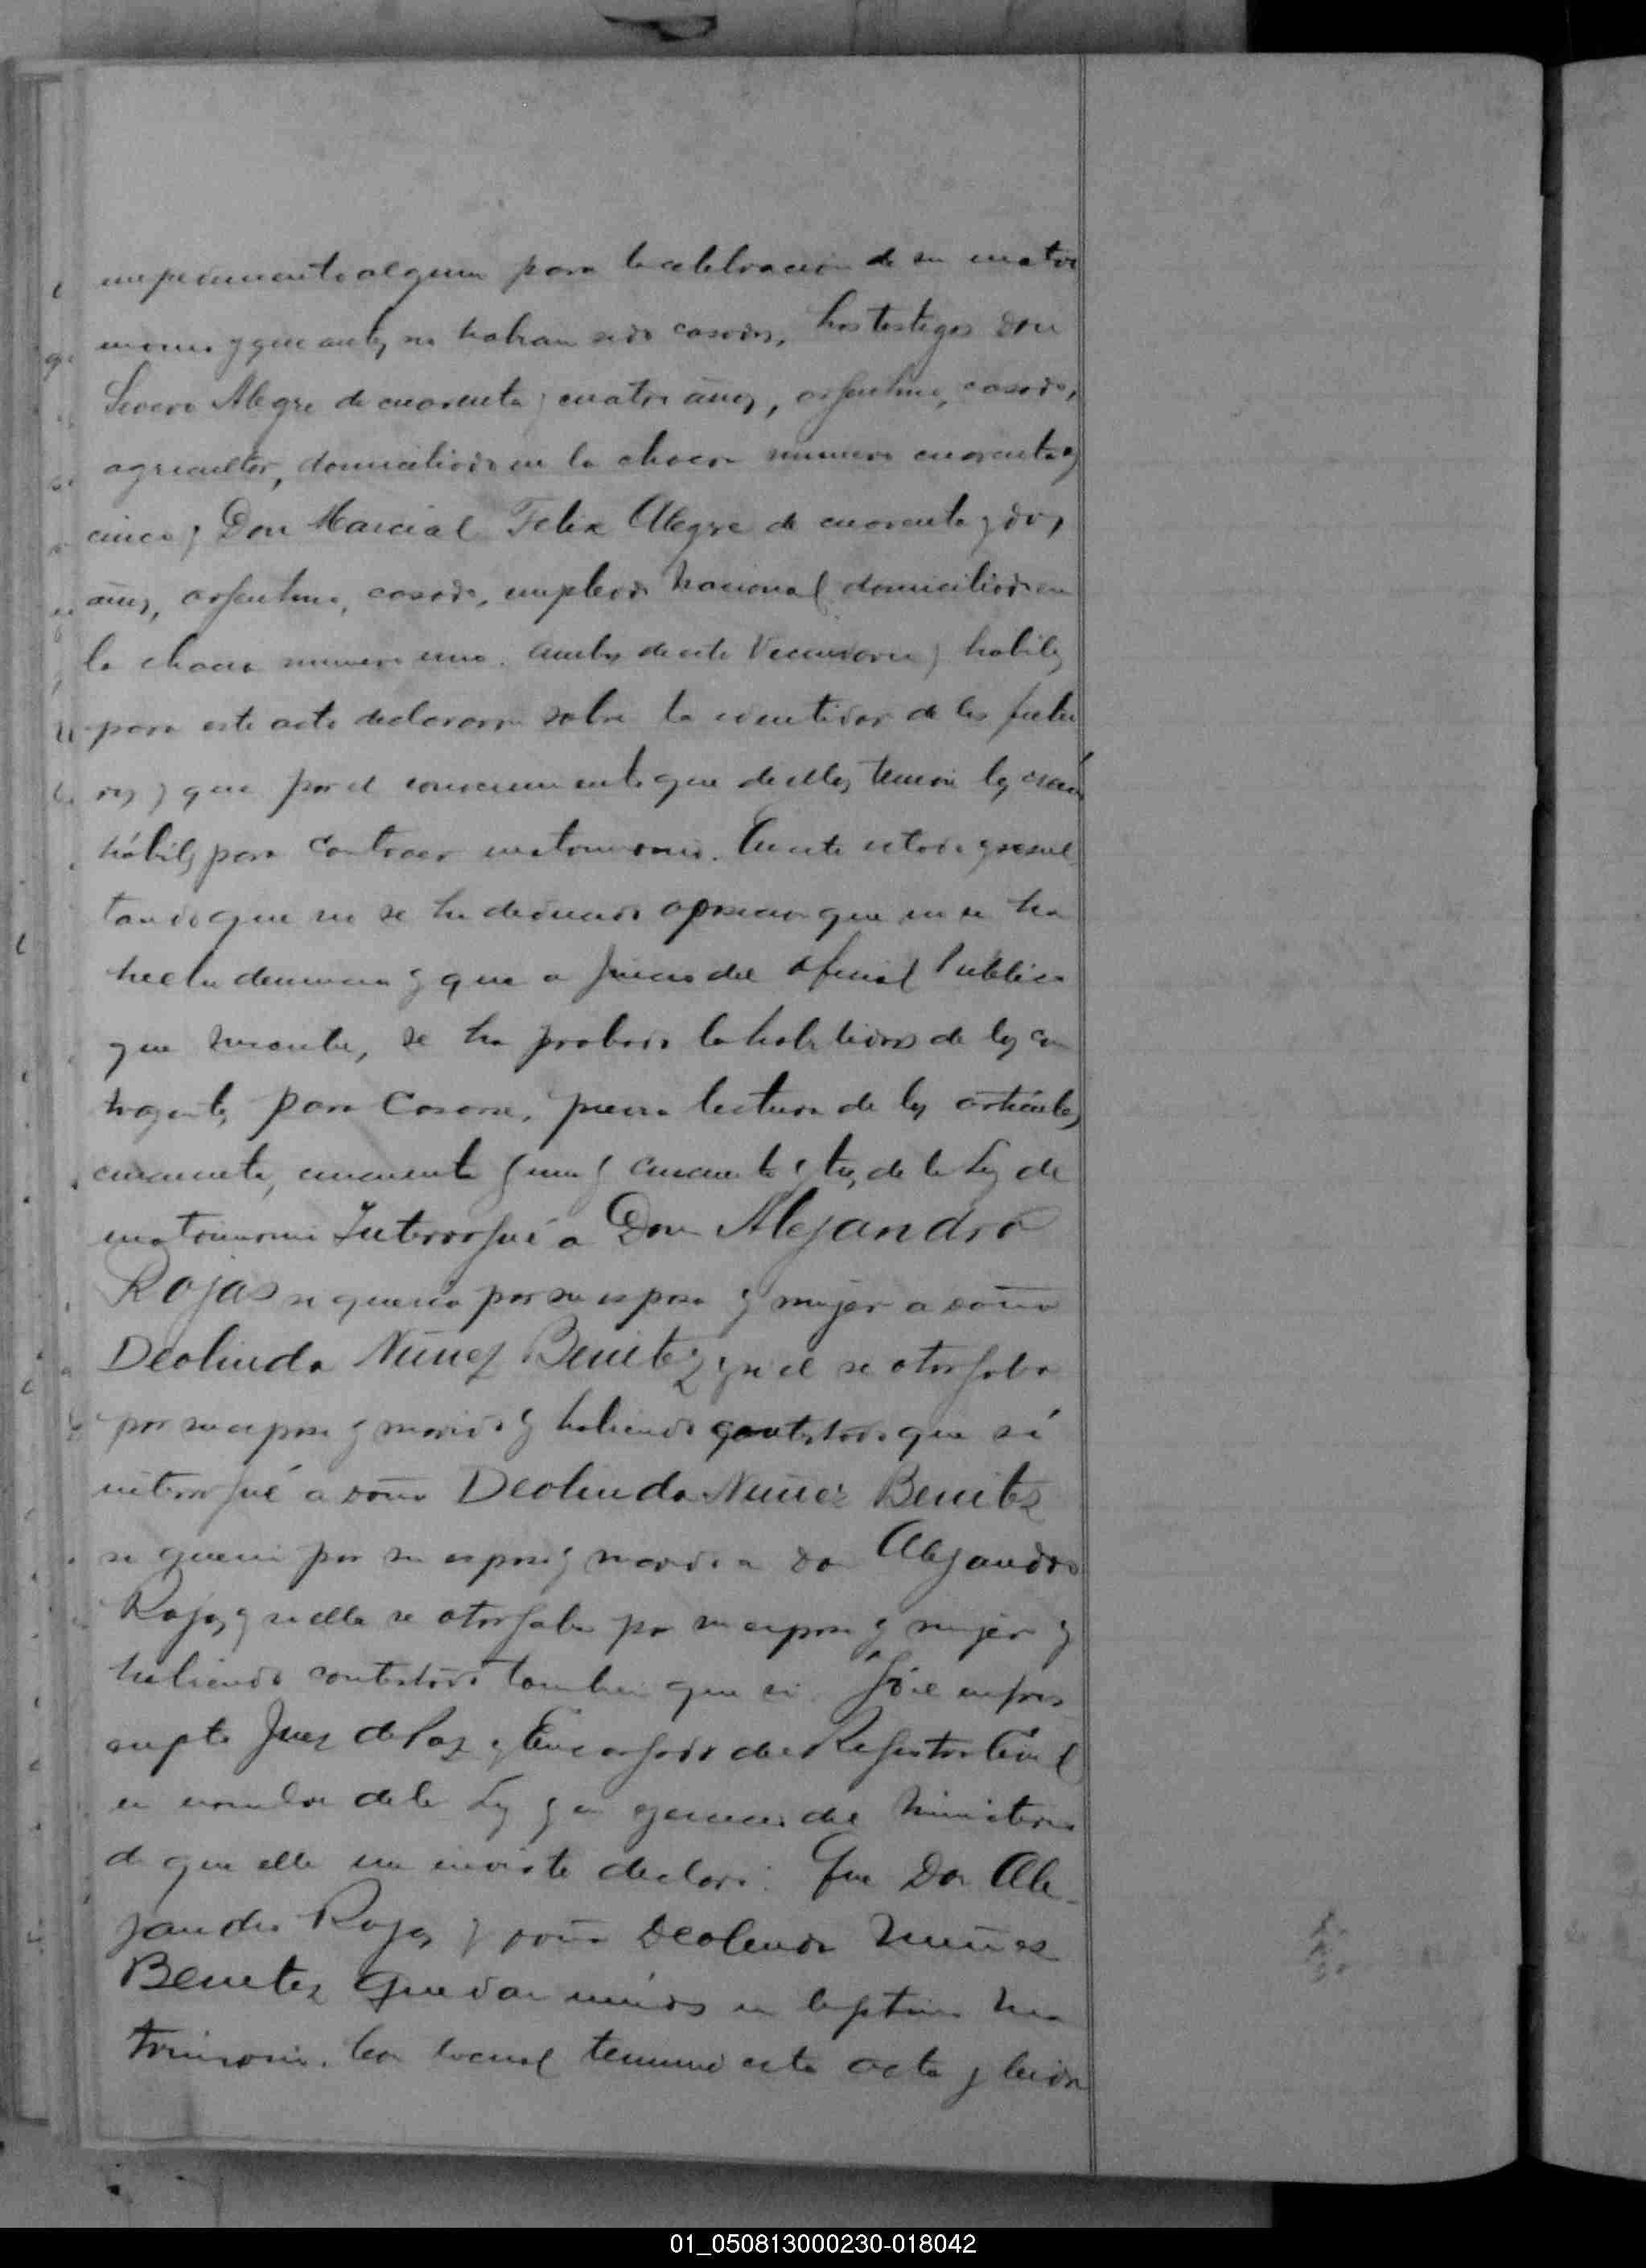 impedimento alguno para la celebracion de su matri
monio y que antes no habian sido casados, Los testigos Don
Severo Alegre de cuarenta y cuatro años, argentino, casado,
agricultor, domiciliado en la chacra numero cuarenta y
cinco y Don Marcial Felix Alegre de cuarenta y dos
años, argentino, casado, empleado Nacional domiciliado en
la chacra numero uno. ambos de este Vecindario y habiles
para este acto declararon sobre la identidad de los futu
ros y que por el conocimiento que de ellos tenian los creian
hábiles para contraer matrimonio. En este estado y resul
tando que no se ha deducido oposicion que no se ha
hecho denuncia y que a juicio del Oficial Publico
que suscribe, se ha probado la habilidad de los con
trayentes para Casarse, previa lectura de los artículos
cincuenta, cincuenta y uno y cincuenta y tres, de la Ley de
matrimonio Interrogué a Don Alejandro
Rojas si queria por su esposa y mujer a doña
Deolinda Nuñez Benitez y si el se otorgaba
por su esposo y marido y habiendo contestado que sí
interrogué a doña Deolinda Nuñez Benitez
si queria por su esposo y marido a don Alejandro
Rojas y si ella se otorgaba por su esposa y mujer y
habiendo contestado tambien que si. Yo el infras
cripto Juez de Paz y Encargado del Registro Civil
en nombre de la Ley y en ejercicio del Ministerio
de que ella me inviste declaro: Que Don Ale-
jandro Rojas y doña Deolinda Nuñez
Benitez quedan unidos en legitimo Ma
trimonio. Con lo cual terminó esta acta y leida
01_050813000230-018042